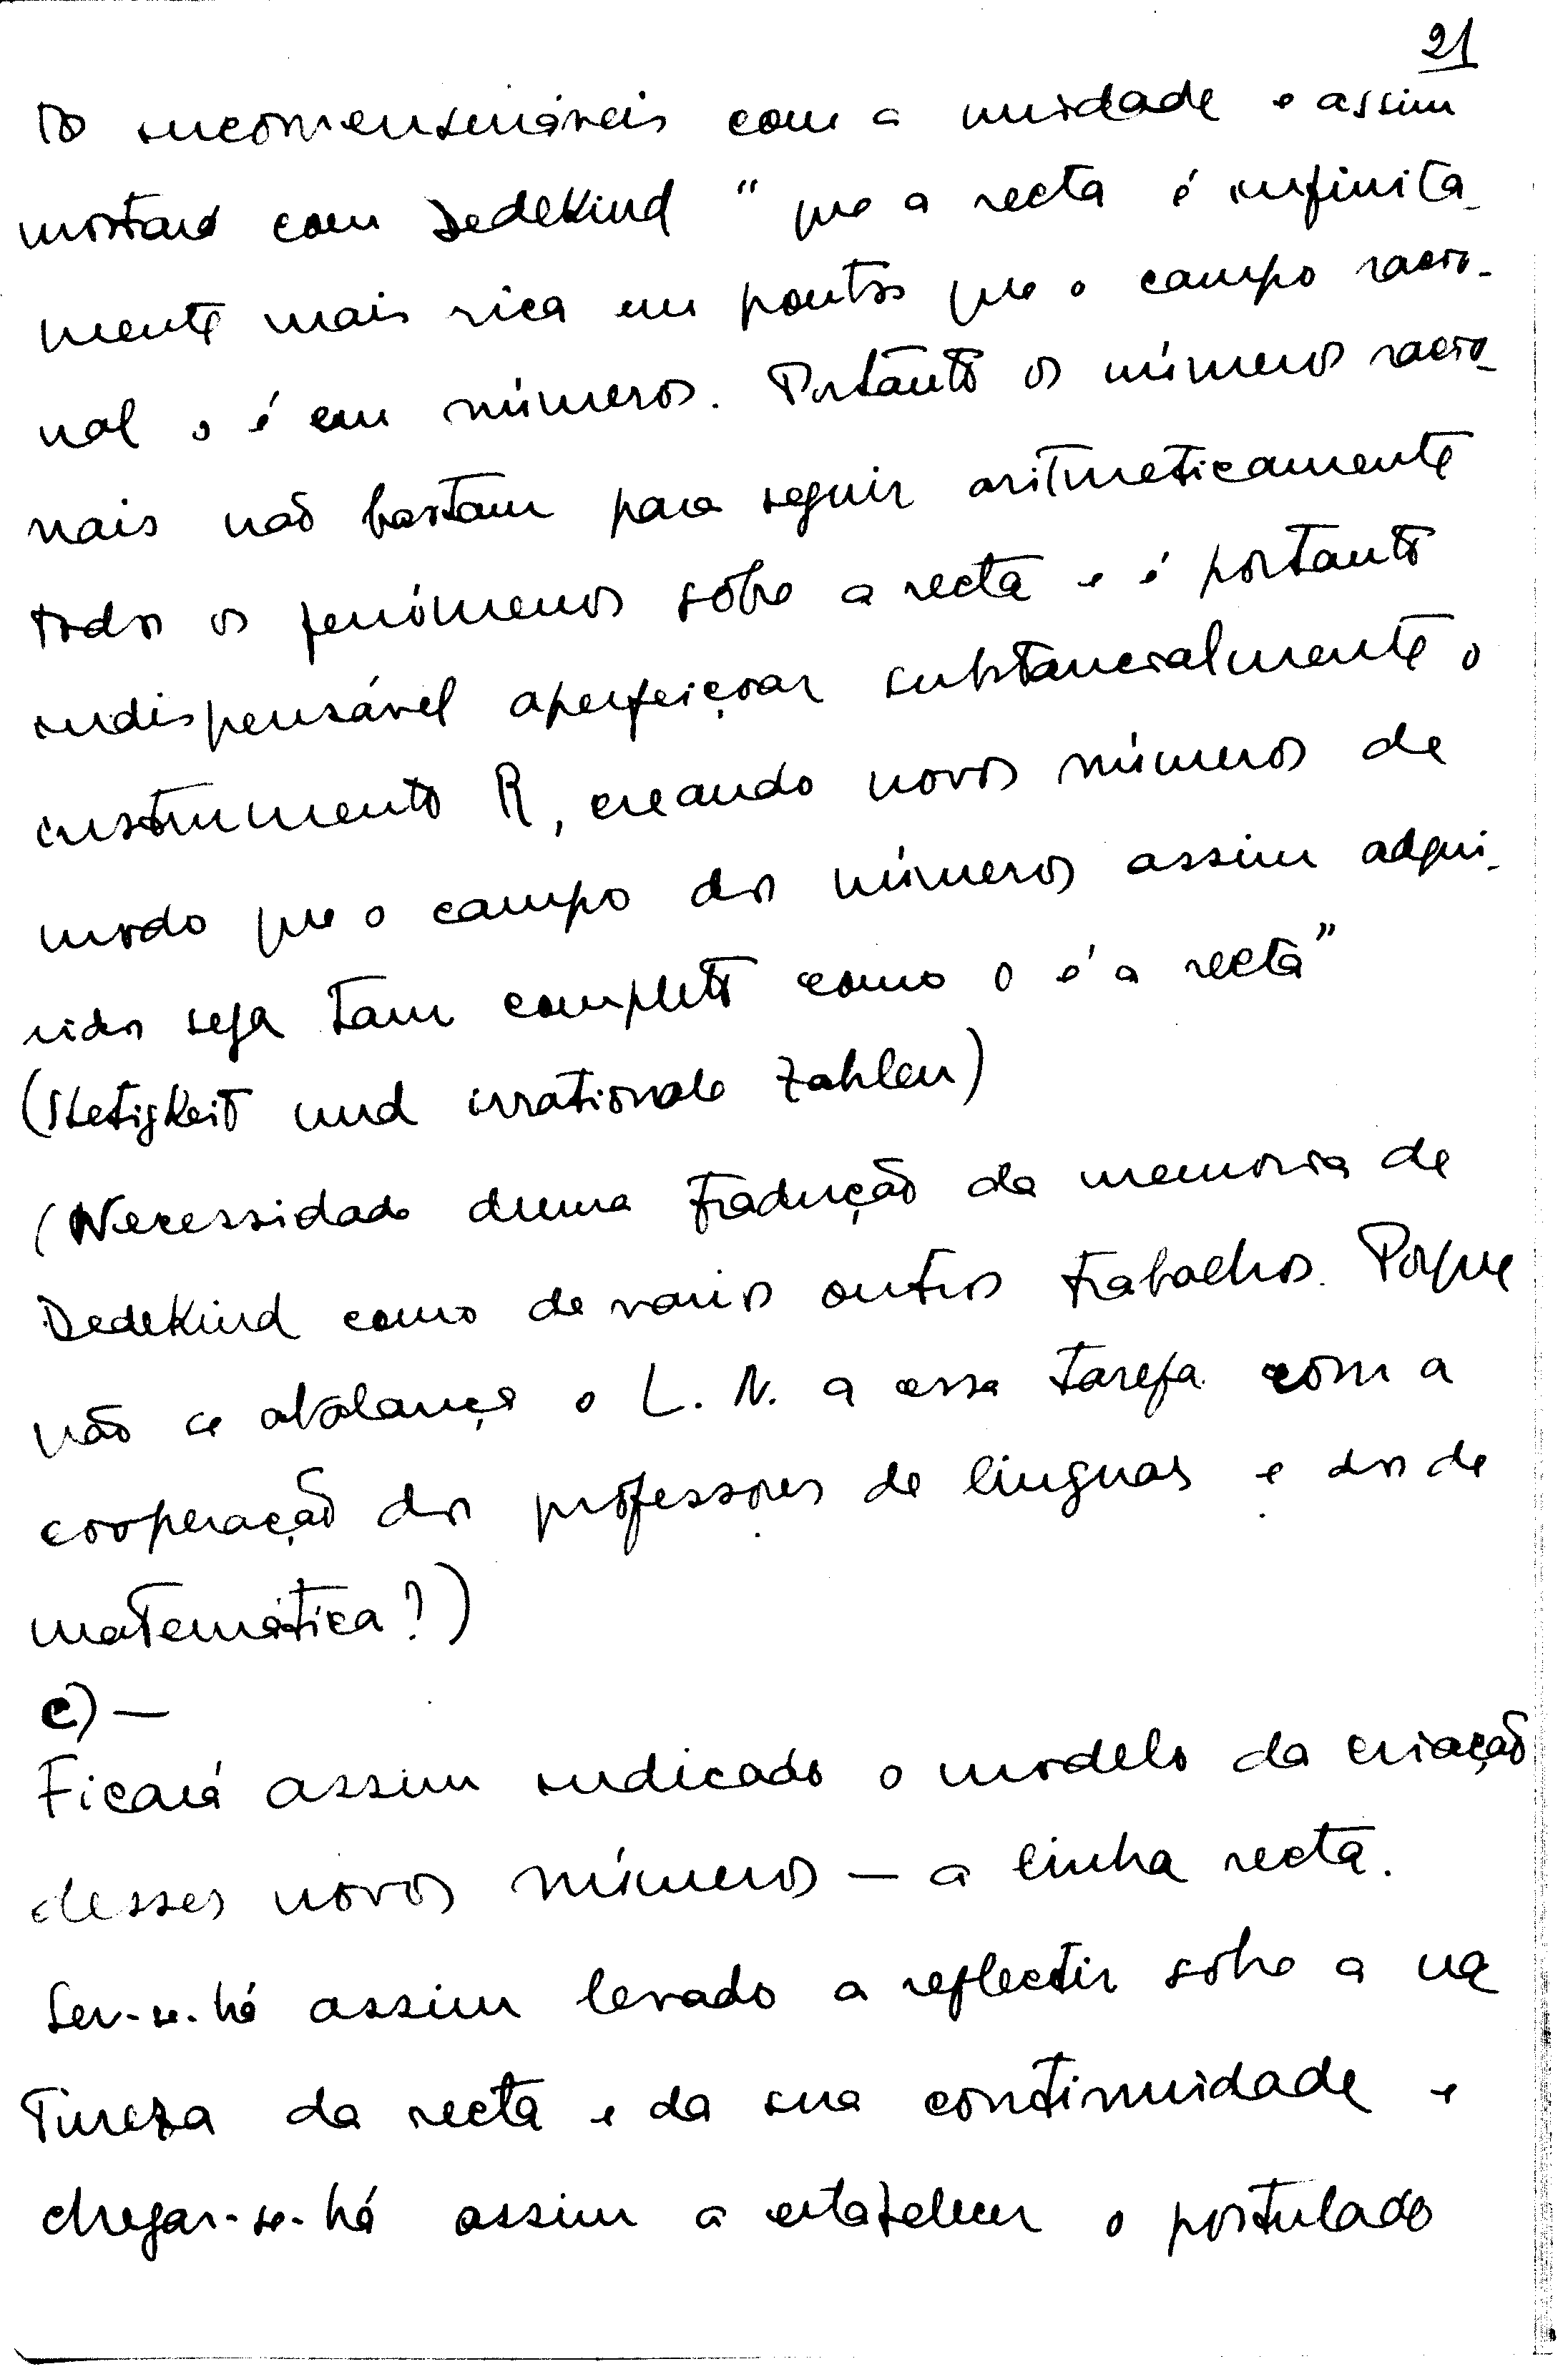 21
to incomensuráveis com a unidade e assim
mostrará com Dedekind "que a recta é infinita-
mente mais rica em pontos que o campo racio-
nal o é em números. Portanto os números racio-
nais não bastam para seguir aritmeticamente
todos os fenómenos sôbre a recta e é portanto
indispensável aperfeiçoar substancialmente o
instrumento R, creando novos números de
modo que o campo dos números assim adqui-
ridos seja tam completo como o é a recta"
(Stetigkeit und irrationale Zahlen)
(Necessidade duma tradução da memoria de
Dedekind como de varios outros trabalhos. Porque
não se abalança o L. N. a essa tarefa com a
cooperação dos professores de linguas e dos de
matemática?)
c) —
Ficará assim indicado o modelo da criação
desses novos números — a linha recta.
Ser-se-há assim levado a reflectir sôbre a na
tureza da recta e da sua continuidade e
chegar-se-há assim a estabelecer o postulado